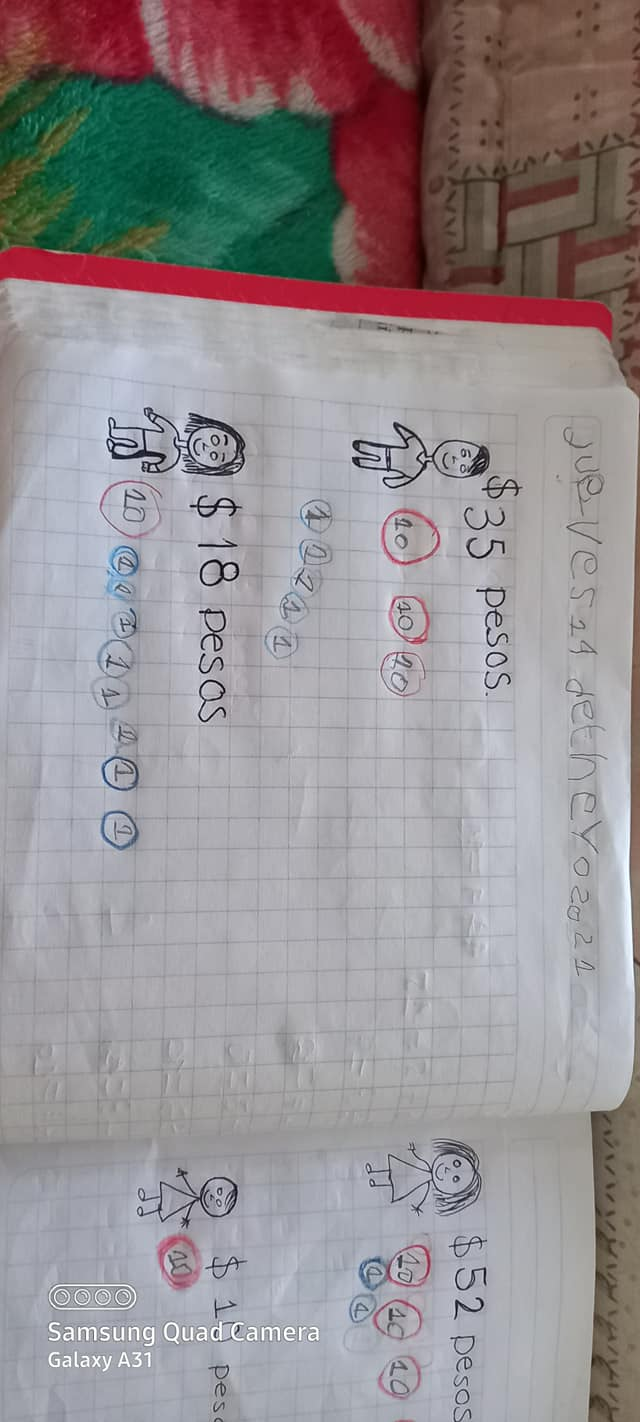 jueves 14 de eneyo 2021
$35 pesos.
10 10 10
1 1 1 1 1
$18 pesos
10 1 1 1 1 1 1 1 1
$52 pesos
10 10 10
1 1
$ 1
10
Samsung Quad Camera
Galaxy A31